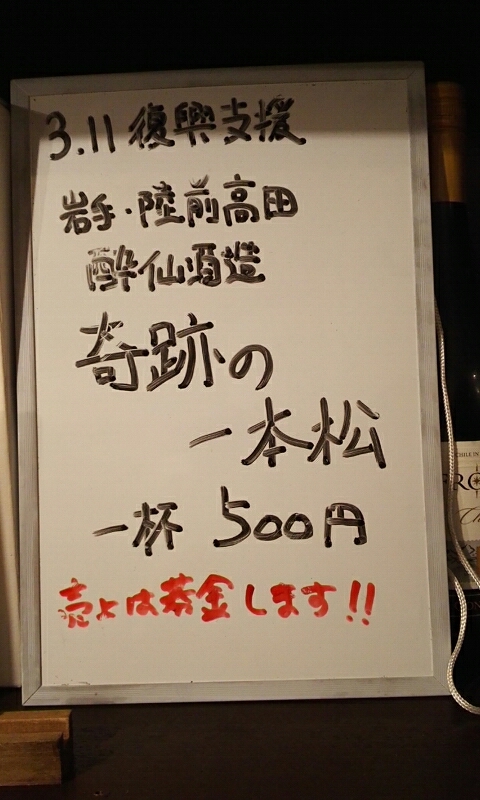 3.11 復興支援
岩手・陸前高田
酔仙酒造
奇跡の
一本松
一杯 500円
売上は募金します!!